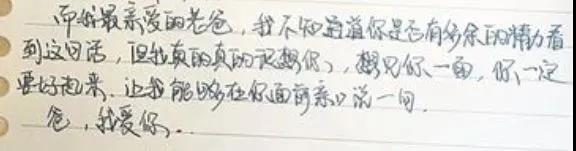 而我最亲爱的老爸，我不知道你是否有多余的精力看
到这句话，但我真的真的很想你，想见你一面，你一定
要好起来，让我能够在你面前亲口说一句，
爸，我爱你．